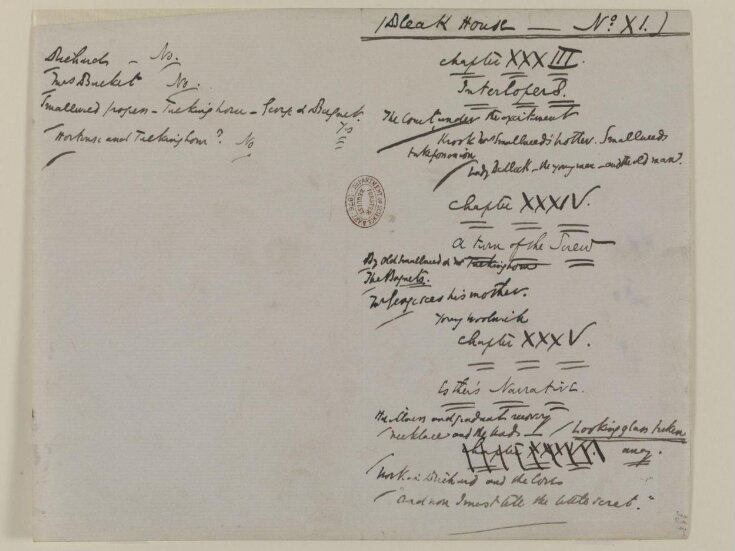 (Bleak House — No XI.)
Richard — No.
Mrs Bucket No.
Smallweed progress — Tulkinghorn — George & Bagnet.
Yes
Hortense and Tulkinghorn? No
chapter XXXIII.
Interlopers.
The Court under the excitement
Krook Mrs Smallweed's brother. Smallweeds
take possession
Lady Dedlock — the young man — and the old man.
chapter XXXIV.
A turn of the Screw
By old Smallweed & Mr Tulkinghorn
The Bagnets.
Mr George sees his mother.
Young Woolwich
chapter XXXV.
Esther's Narrative.
Her illness and gradual recovery
Necklace and the beads — Looking glass taken
away.
Work in Richard and the
"And now I must tell the little secret."